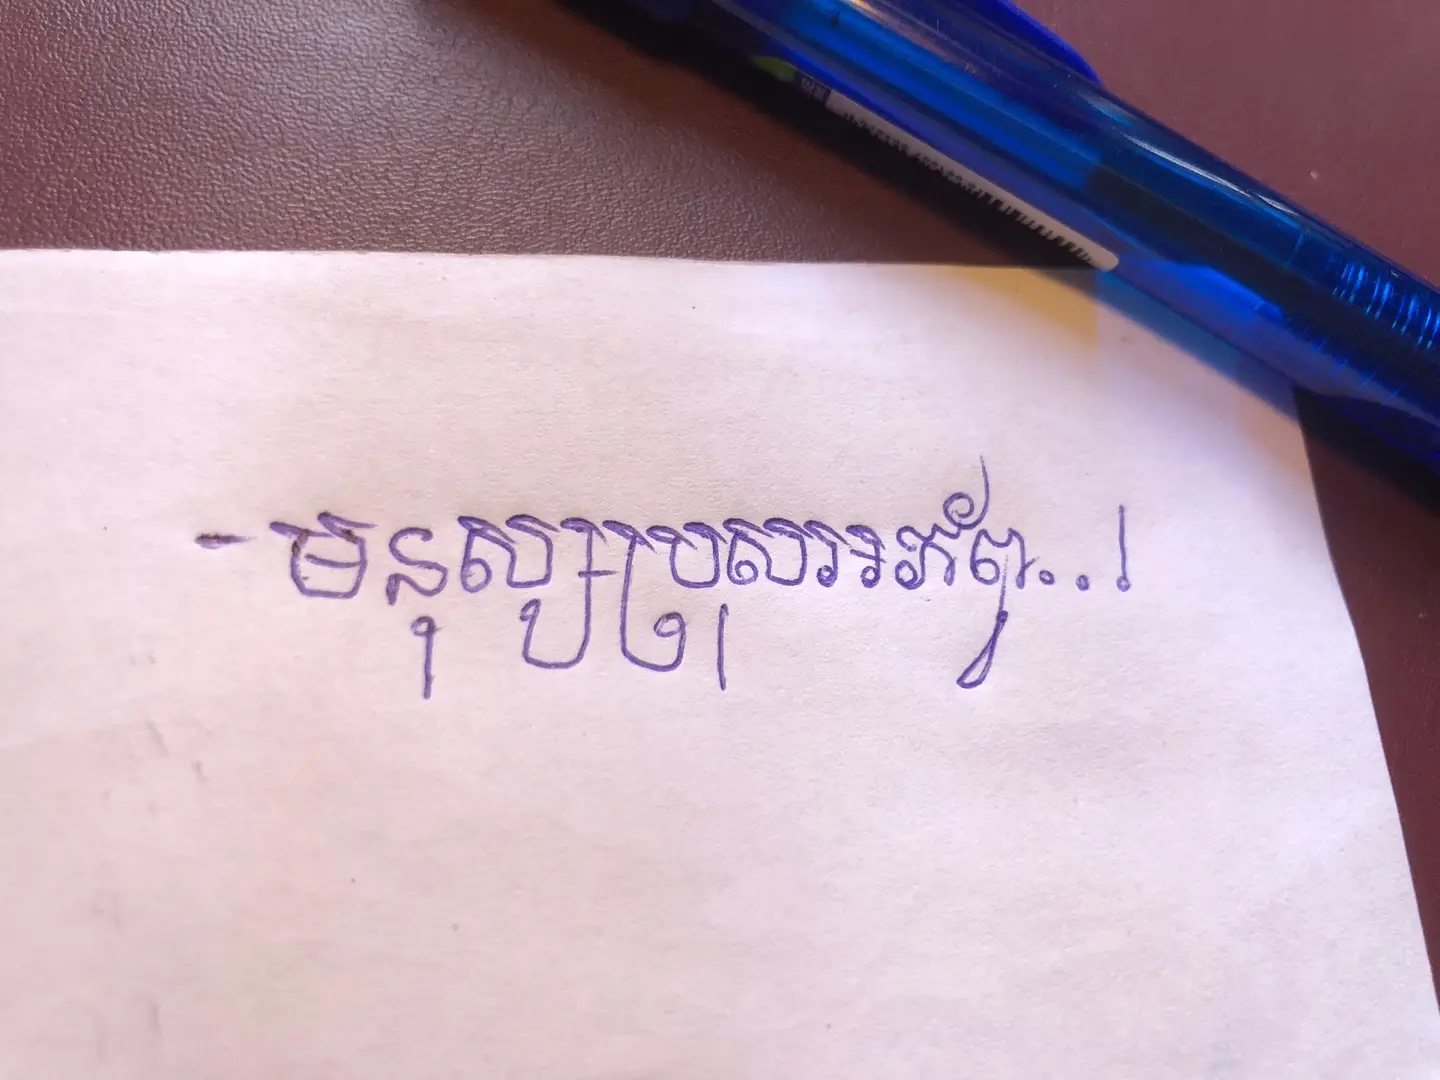 - មនុស្សប្រុសអភ័ព្វ..!